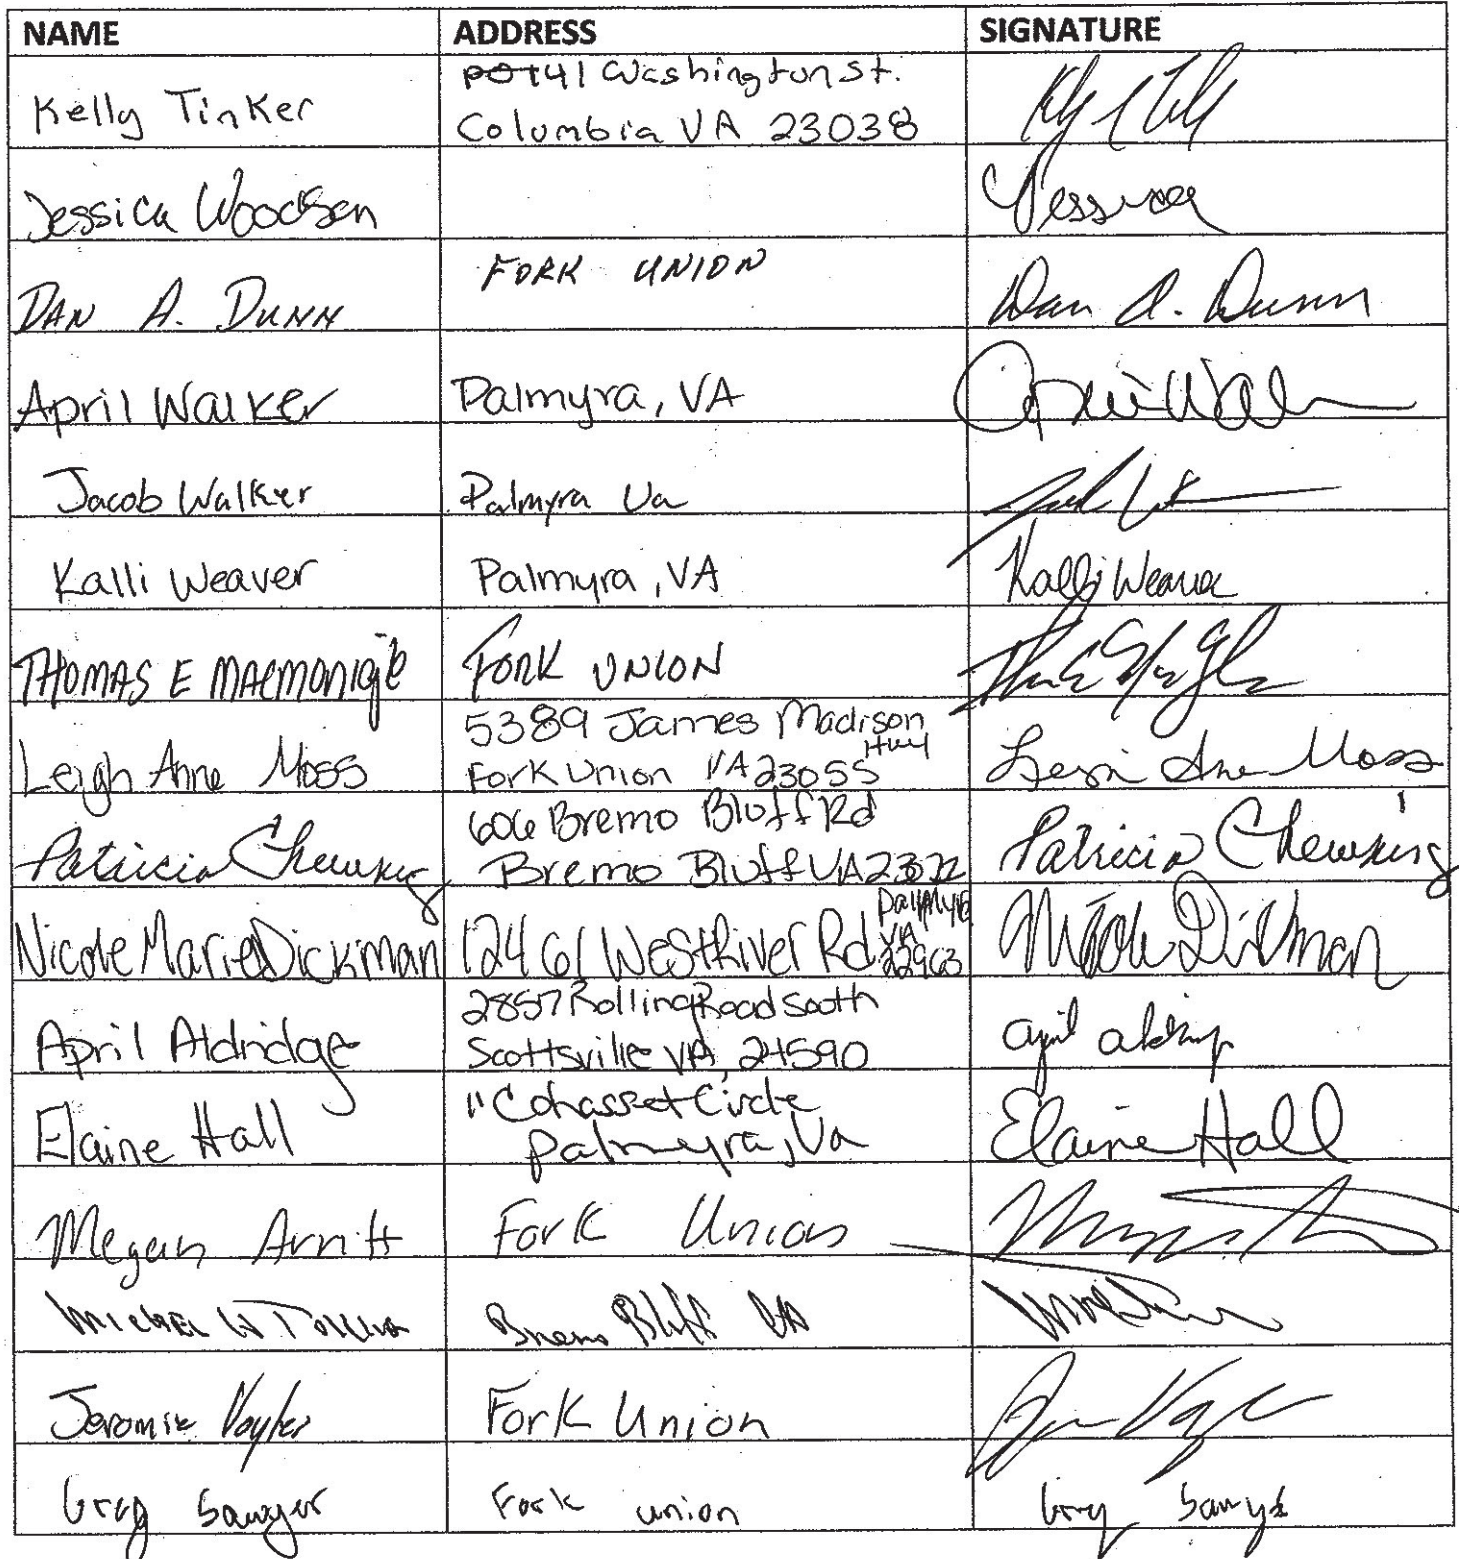 NAME ADDRESS SIGNATURE
Kelly Tinker 141 Washington St.
Columbia VA 23038
Jessica Woodson Jessica
DAN A. DUNN FORK UNION Dan A. Dunn
April Walker Palmyra, VA
Jacob Walker Palmyra Va
Kalli Weaver Palmyra, VA Kalli Weaver
THOMAS E MACMONIGLE FORK UNION
Leigh Anne Moss 5389 James Madison Hwy
Fork Union VA 23055 Leigh Anne Moss
Patricia Chewning 606 Bremo Bluff Rd
Bremo Bluff VA Patricia Chewning
Nicole Marie Dickman 12461 West River Rd Palmyra VA 22963 Nicole Dickman
April Aldridge 2857 Rolling Road South
Scottsville VA, 24590 april aldridge
Elaine Hall 11 Cohasset Circle
Palmyra, Va Elaine Hall
Megan Arritt Fork Union
Bremo Bluff VA
Fork Union
Greg Sawyer Fork union Greg Sawyer